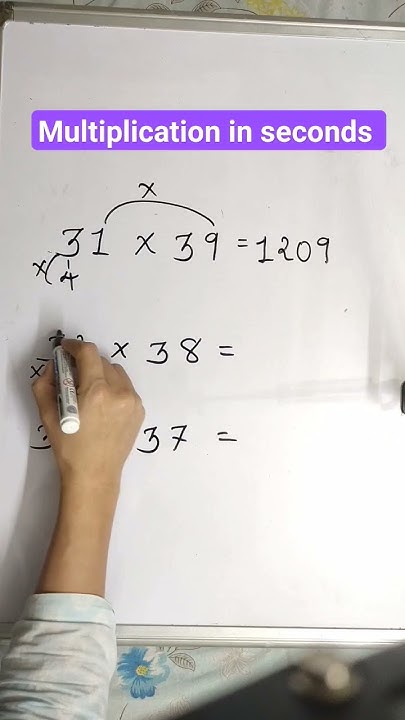 Multiplication in seconds
x
31 x 39 = 1209
x 4
x 38 =
x
3 37 =